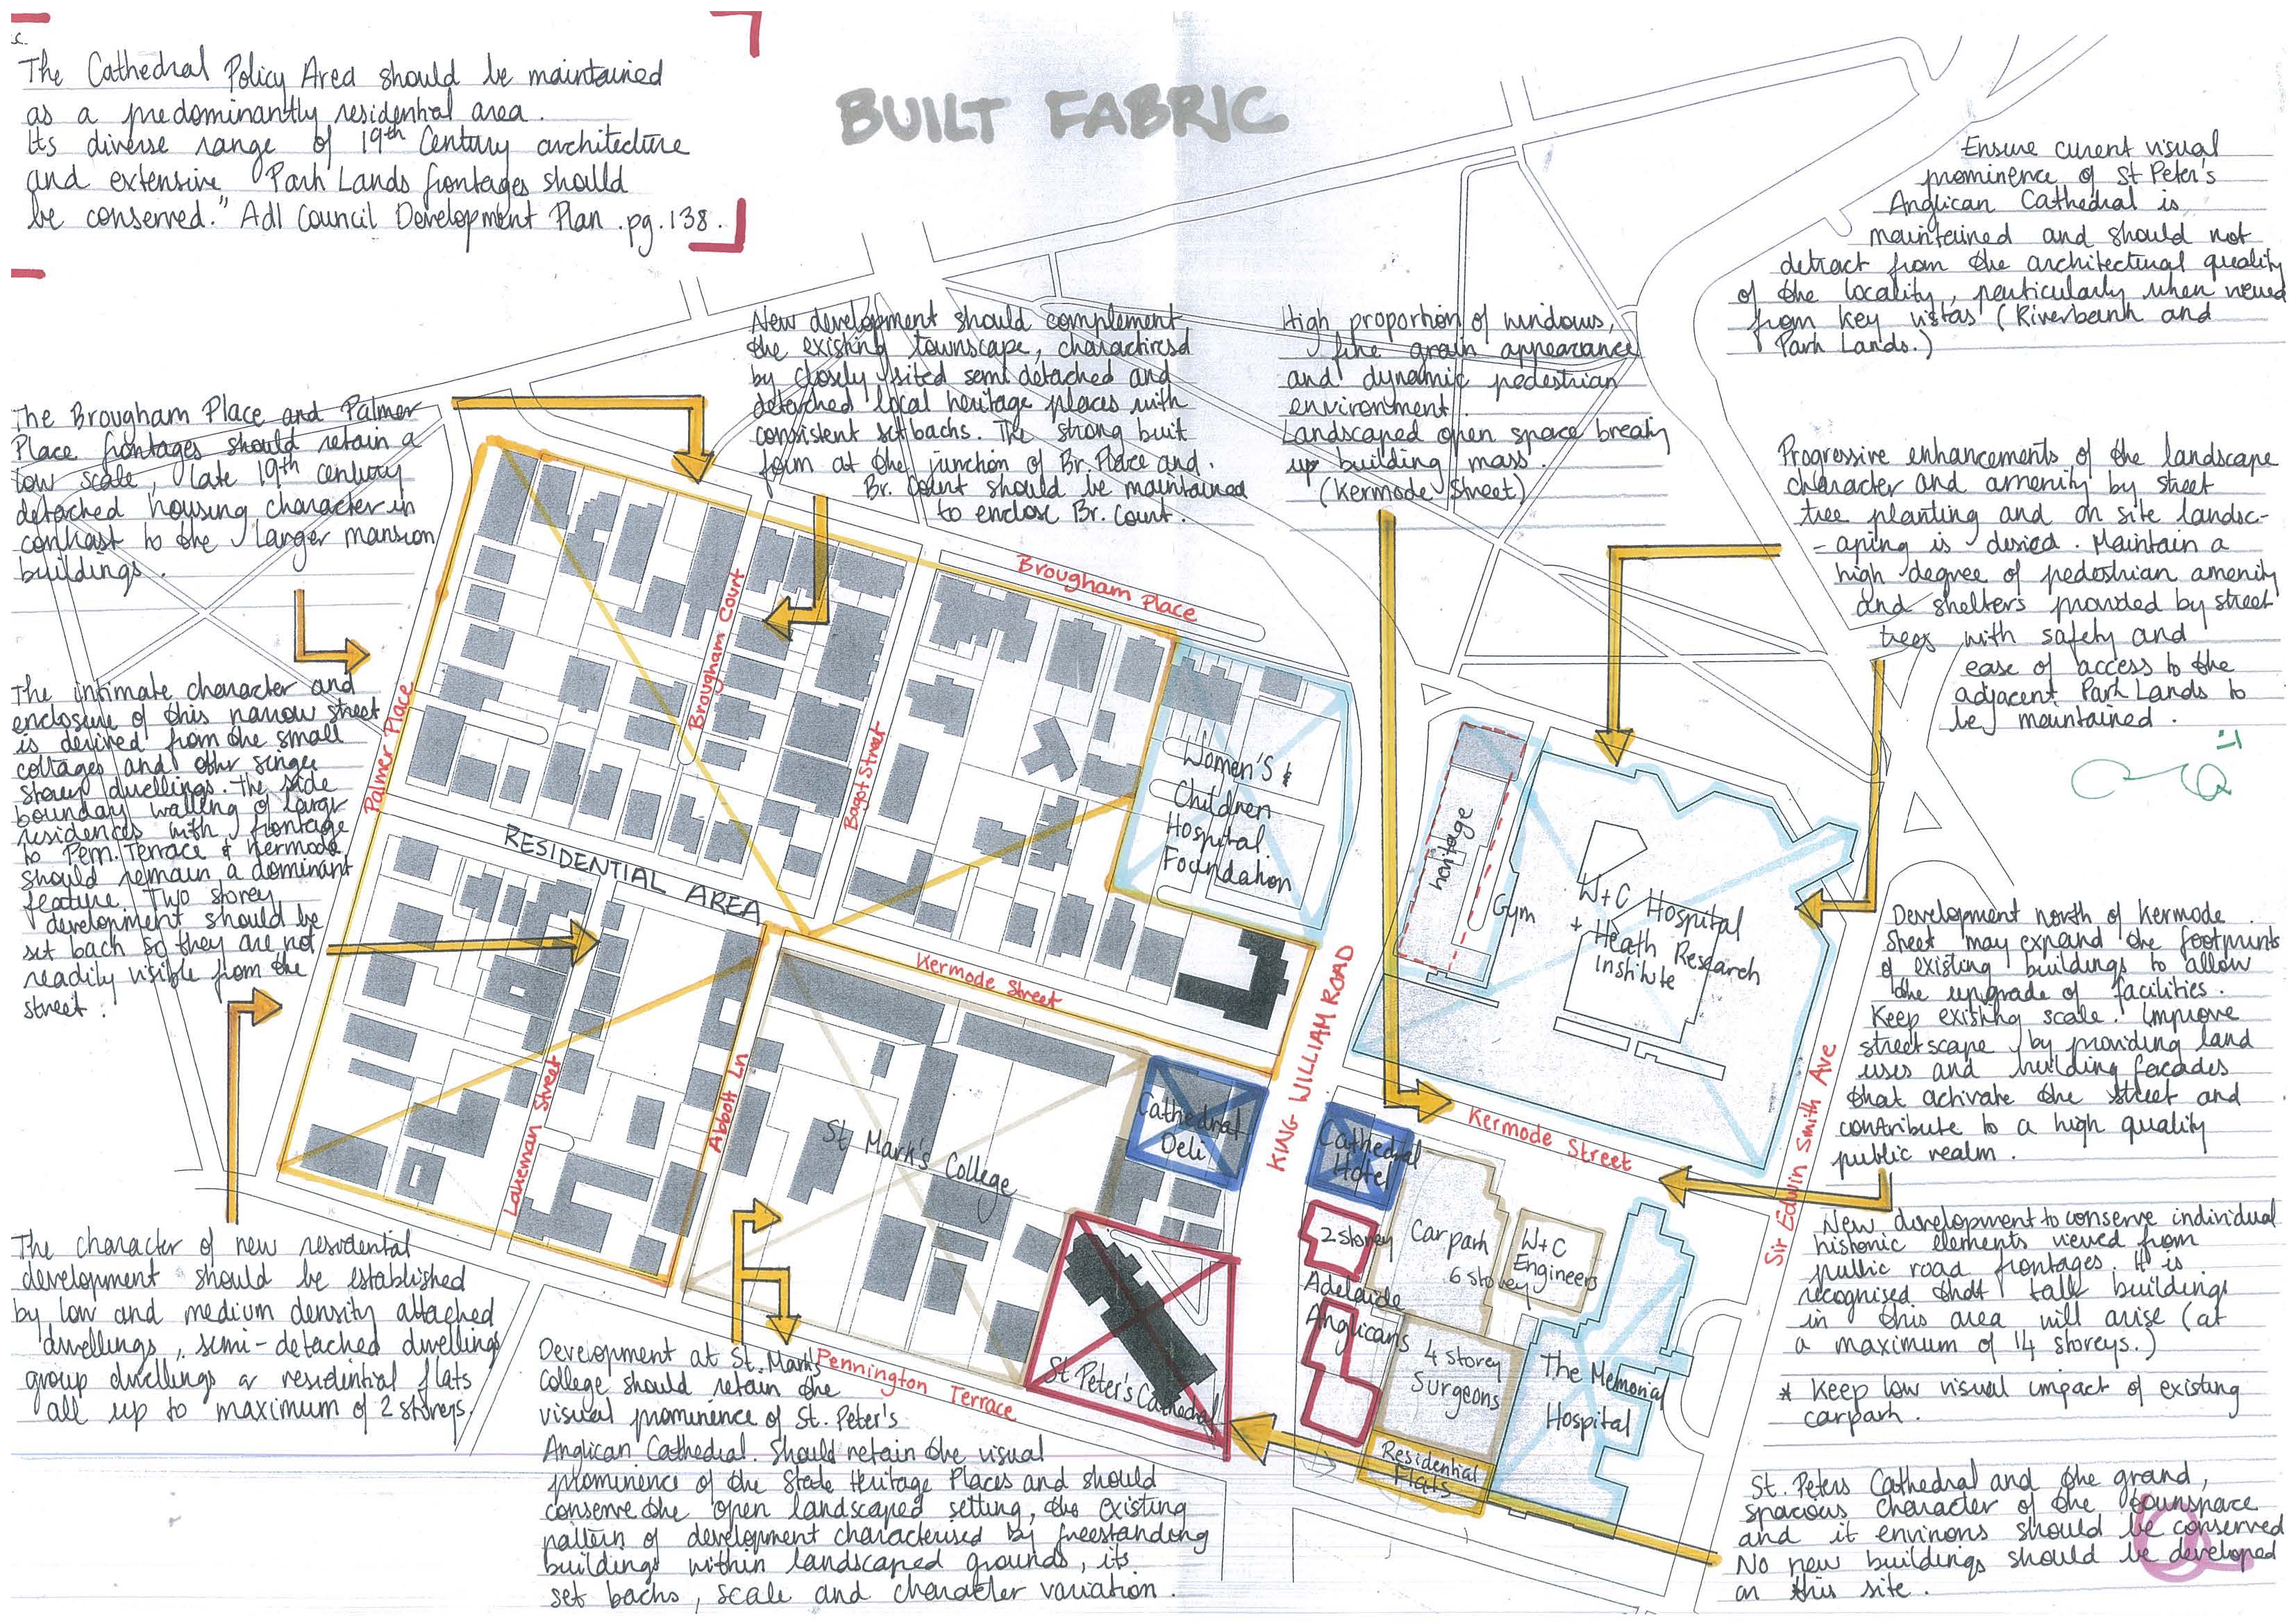 The Cathedral Policy Area should be maintained
as a predominantly residential area.
Its diverse range of 19th Century architecture
and extensive Park Lands frontages should
be conserved." Adl Council Development Plan . pg. 138.
BUILT FABRIC
Ensure curent visual
prominence of St Peter's
Anglican Cathedral is
maintained and should not
detract from the architectural quality
of the locality, particularly when viewed
from key vistas (Riverbank and
Park Lands.)
New development should complement
the existing townscape, charactiresd
by closely sited semi detached and
detached local heritage places with
consistent setbacks. The strong buit
form at the junction of Br. Place and
Br. Court should be maintained
to enclose Br. Court.
High proportion of windows,
fine grain appearance
and dynamic pedestrian
environment.
Landscaped open space breaks
up building mass.
(Kermode Street)
The Brougham Place and Palmer
Place frontages should retain a
low scale, late 19th century
detached housing character in
contrast to the larger mansion
buildings.
Progressive enhancements of the landscape
character and amenity by street
tree planting and on site landsc-
-aping is desired. Maintain a
high degree of pedestrian amenity
and shelters provided by street
trees with safety and
ease of access to the
adjacent Park Lands to
be maintained.
The intimate character and
enclosure of this narrow street
is derived from the small
cottages and other single
storey dwellings. The side
boundary walling of larger
residences with frontage
to Penn. Terrace & Kermode
should remain a dominant
feature. Two storey
development should be
set back so they are not
readily visible from the
street.
Brougham Place
Brougham Court
Palmer Place
Bagot Street
Women's &
Children
Hospital
Foundation
heritage
Gym
W+C Hospital
+ Heath Research
Institute
RESIDENTIAL AREA
Kermode Street
KING WILLIAM ROAD
Development north of Kermode
Street may expand the footprints
of existing buildings to allow
the upgrade of facilities.
Keep existing scale. Improve
streetscape by providing land
uses and building facades
that activate the street and
contribute to a high quality
public realm.
Lakeman Street
Abbott Ln
St Mark's College
Cathedral
Deli
Cathedral
Hotel
Kermode Street
Sir Edwin Smith Ave
2 Storey
Carpark
6 Storey
W+C
Engineers
Adelaide
Anglicans
4 Storey
Surgeons
The Memorial
Hospital
Residential
Flats
St Peter's Cathedral
Pennington Terrace
New development to conserve individual
historic elements viewed from
public road frontages. It is
recognised that tall buildings
in this area will arise (at
a maximum of 14 storeys.)
* Keep low visual impact of existing
carpark.
The character of new residental
development should be established
by low and medium density attached
dwellings, semi-detached dwellings
group dwellings or residential flats
all up to maximum of 2 storeys.
Development at St. Mark's
College should retain the
visual prominence of St. Peter's
Anglican Cathedral. Should retain the visual
prominence of the State Heritage Places and should
conserve the open landscaped setting, the existing
pattern of development characterised by freestanding
buildings within landscaped grounds, its
set backs, scale and character variation.
St. Peters Cathedral and the grand,
spacious character of the townspace
and it environs should be conserved
No new buildings should be developed
on this site.